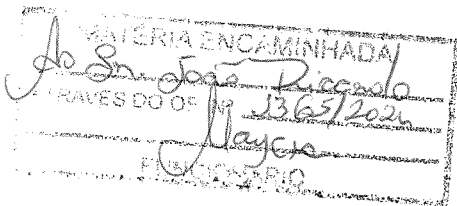 MATÉRIA ENCAMINHADA
Ao Sr. João Riccardo
TRAVÉS DO OF. Nº 1365/2024
Mayca
FUNCIONÁRIO